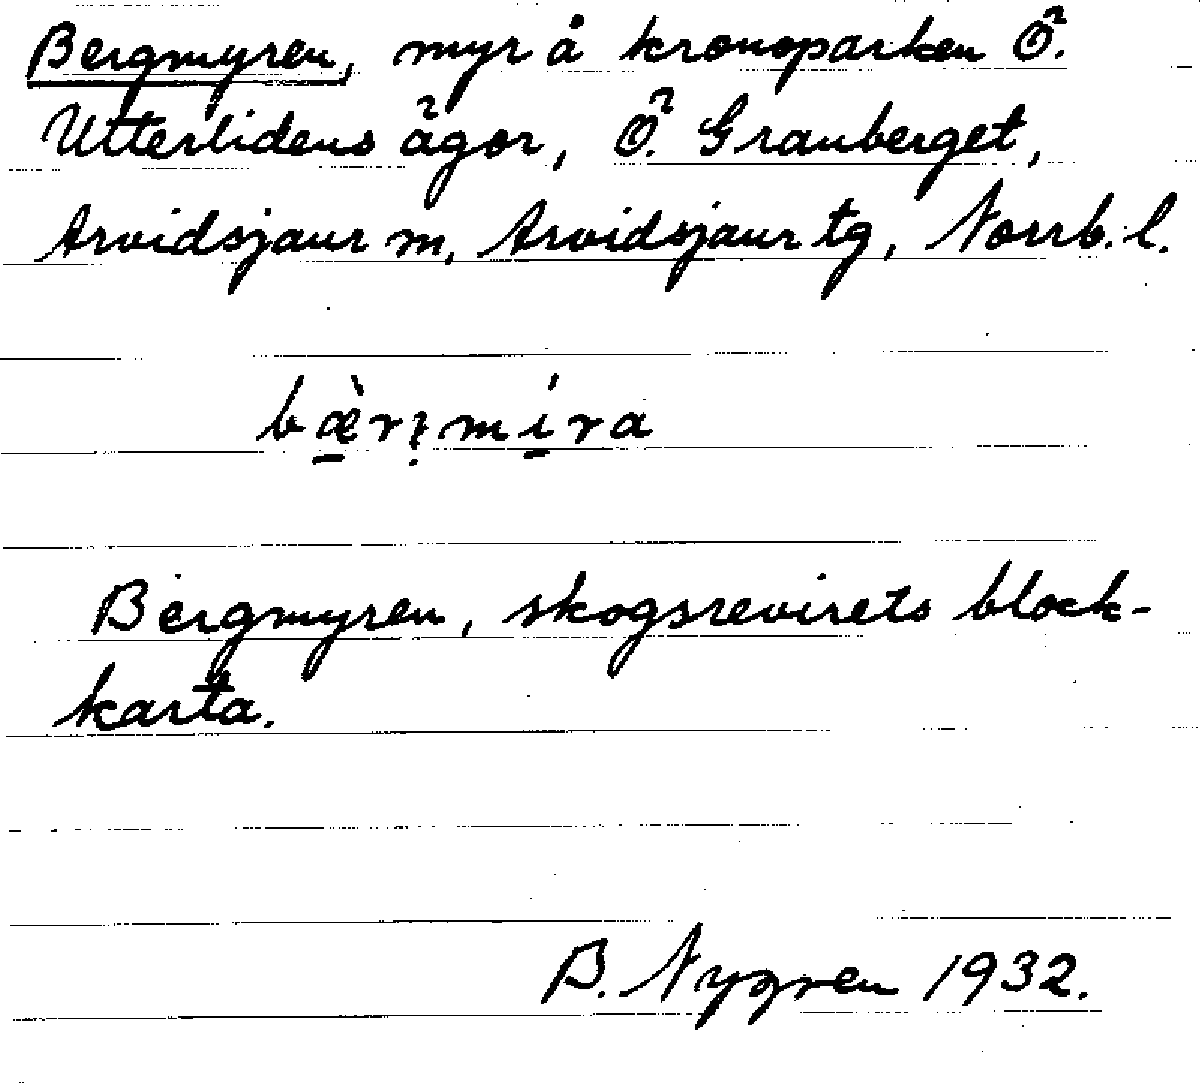 Bergmyren, myr å kronoparken Ö.
Utterlidens ägor, Ö. Granberget,
Arvidsjaur m, Arvidsjaur tg, Norrb. l.
Bergmyren, skogsrevirets block-
karta.
B. Nygren 1932.